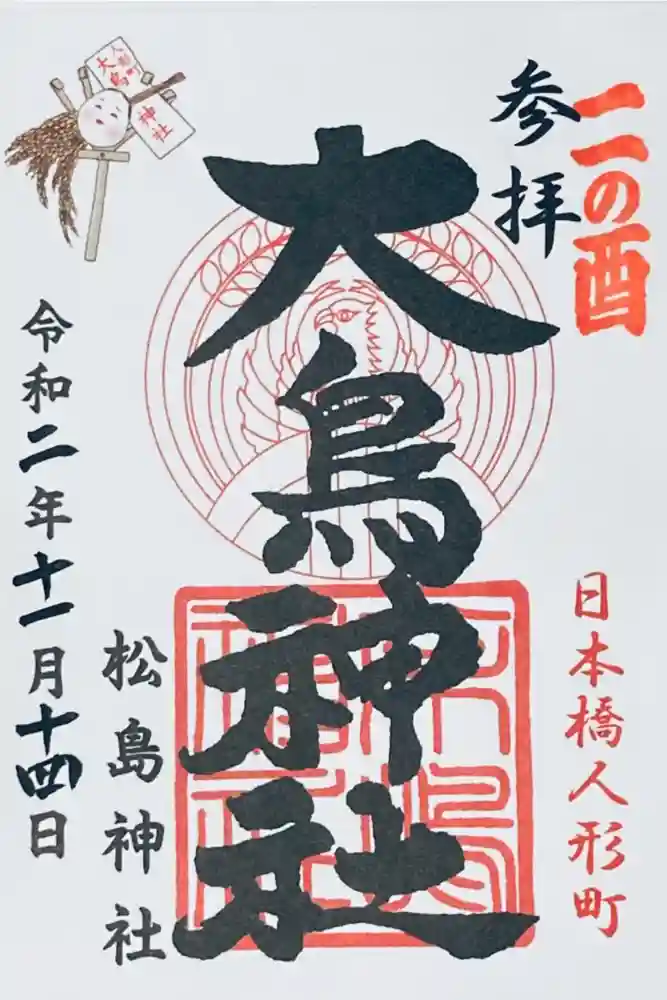 二の酉
参拝
日本橋人形町
大鳥神社
松島神社
令和二年十一月十四日
人形町
大鳥
神社